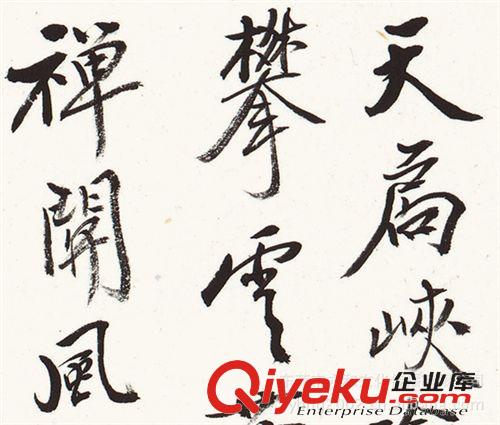 天扃峽
攀雲
禪開風
Qiyeku.com 企业库
Enterprise Database